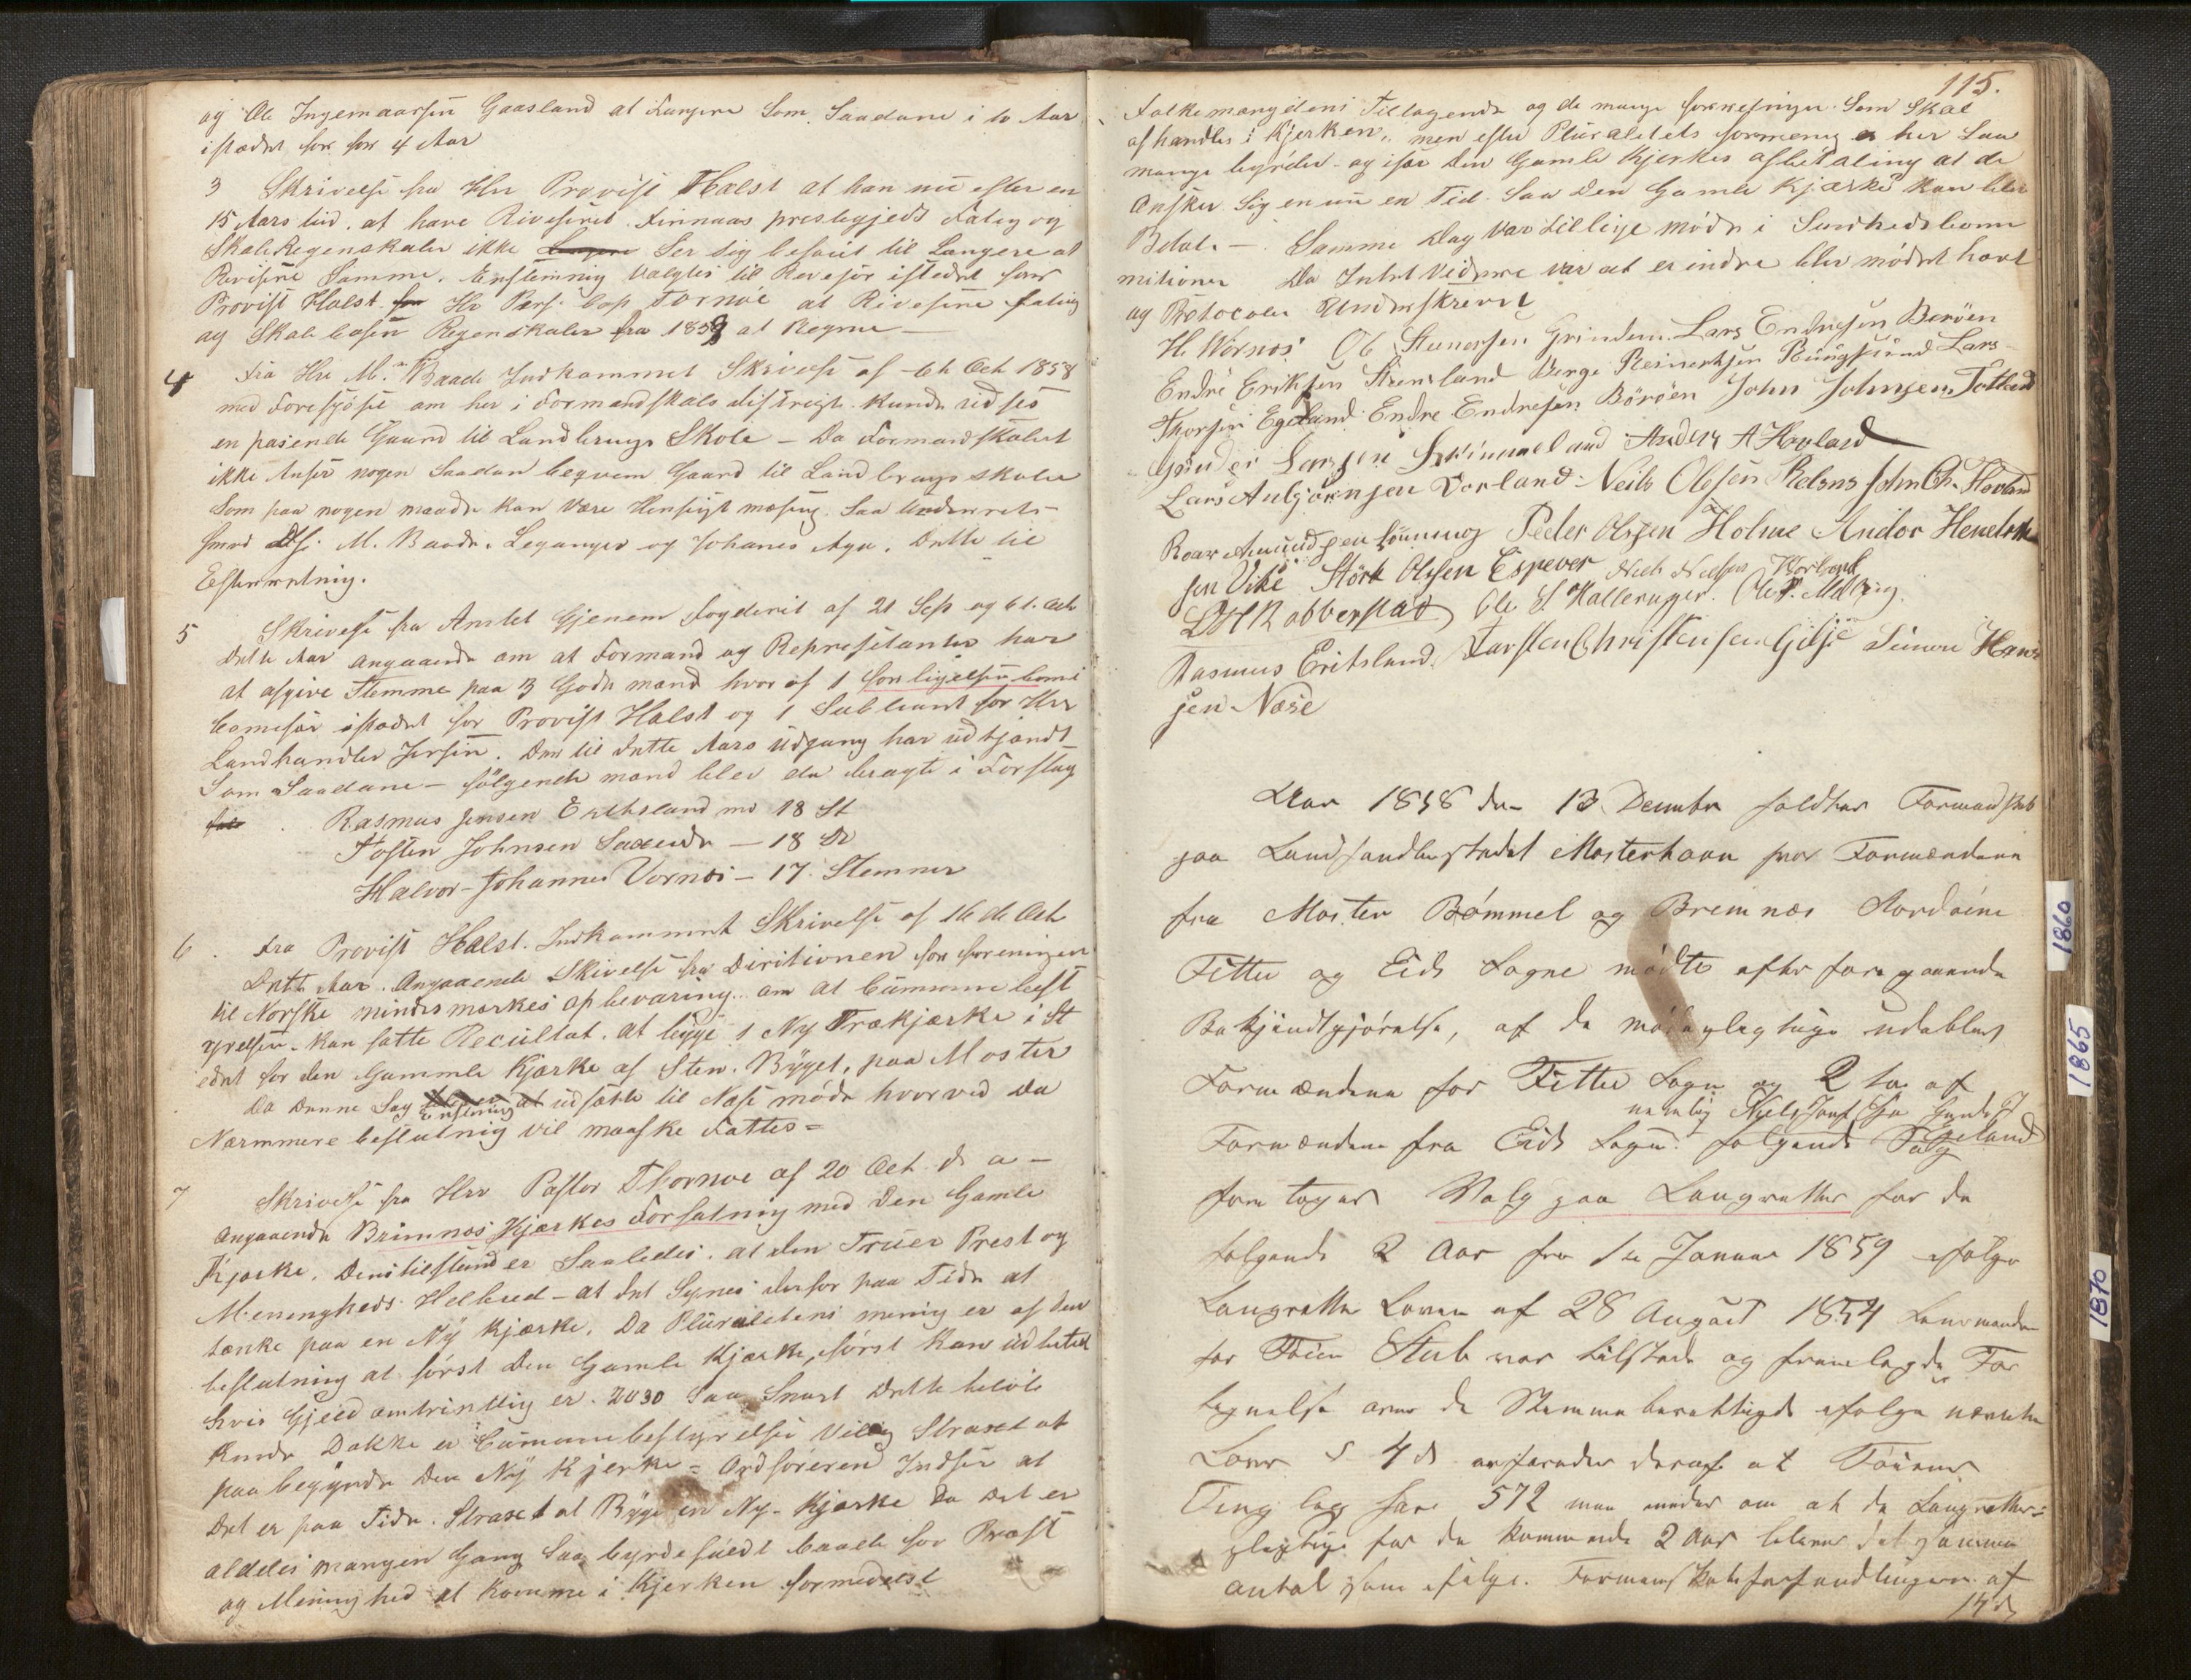 og Ole Ingemaarsen Gaasland at Fungere Som Saadane i to Aar
istædet for for 4 Aar
3 Skrivelse fra Hrr Provist Halst at han nu efter en
15 Aars tiid. at have Riviseret Finnaas prestegjeds Fatig og
Skole Regenskaber ikke Ser sig beføiet til Langere at
Revisere Samme. Enstemnig Valgtes til Revesør istedet for
Provist Halst Hr Pers. Cap Tornöe at Rivesere fatig
og Skole Casen Regenskaber fra 1859 at Regne —
4 Fra Hrr M. Baade Indkommet Skrivelse af 6te Oct 1858
med Foresjøsel om her i Formandskabs distregt kunde udses
en pasende Gaard til Landbrugs Skole — Da Formandskabet
ikke Anser nogen Saadan beqvem Gaard til Landbrugs skole
Som paa nogen maade kan være Hensigt mæsig. Saa Underrets-
M. Baade. Leganger og Johanes Aga. Dette til
Efterretning.
5 Skrivelse fra Amtet Gjenem Fogderiet af 21 Sep og 6t. Oct
dette Aar angaaende om at Formand og Represetanter har
at afgive Stemme paa 3 Gode mænd hvor af 1 forligelsens komi
Comesør istædet for Provist Halst og 1 Subleant for Hrr
Landhandler Jersin. Der til dette Aars Udgang har udtjændt
Som Saadane — følgende mænd blev da bragte i Forslag
Rasmus Jensen Erithsland md 18 St
Tosten Johnsen Saxeide — 18 Do
Halvor Johannes Vornæs — 17 Stemmer
6. Fra Provist Halst. Indkommet Skrivelse af 16 de Oct
Dette Aar. Angaaende Skivelse fra Diritionen for foreningen
til Norske mindesmærkes opbevaring. om at Cummunebest
yrelsen. Kan fatte Recultat. at bygge 1 Ny Trækjærke i St
edet for den Gammle Kjærke af Sten. Bÿget. paa Moster
Da Denne Sag Enstemig udsatte til Næse møde hvorved Da
Nærmmere beslutnig vil maaske Fattes =
7 Skrivelse fra Hrr Pastor Thornøe af 20 Oct. d. a —
Angaaende Brimnæs Kjærkes Forfatning med Den Gamle
Kjærke. Denstilstand er Saaledes. at den Truer Prest og
Meningheds Helbred — at det Synes derfor paa Tide at
tænke paa en Ny kjærke. Da Pluralitetens menig er af den
beslutning at først den Gamle Kjærke, først kan udbetal
hvis Gjeld omtrintlig er. 2030 Saa Snart Dette beløb
kunde Dækkes er Cummunebestyrelse Villig Straxt at
paabegynde Den Ny Kjerke = Ordføreren Indser at
Det er paa Tide. Straxt at Bygge en Ny Kjærke Da Det er
aldeles mangen Gang Saa byrdefuldt baade for Præst
og Meninghed at komme i Kjerken formedelst
115.
Folkemængdens Tiltagende og de mange forretninger Som Skal
afhandles i Kjerken. men efter Pluralitets formenig er her Saa
mange byrder og især Den Gamle Kjerkes afbetaling at de
Ønsker Sig en nu en Tid Saa Den Gamle Kjærke kan blev
Betalt —. Samme Dag Var tillige møde i Sundhedscom
mitionen Da Intet Videre var at erindre blev mødet hævet
og Protocolen Underskrevet
H. Wornæs Ole Steensen Grindem. Lars Endresen Berøen
Endre Eriksen Steensland Børge Reinertsen Røingsund Lars
Thorsen Egeland Endre Endresen Börøen John Johnsen Totland
Lansen Svinneland Anders A Hovland
Lars Anbjörnsen Vorland Neils Olesen Røksns John Ch. Hovland
Roar Amundsen Finnung Peder Olsen Holme Andor Hendrik
sen Vike Störk Olsen Espever Neels Nelsen Vorland
L H Robberstad Ole S. Halleruger. Ole T. Melling.
Rasmus Eritsland. Tarsten Christensen Gilje Simon Hans
sen Næse
Aar 1858 den 13 December holdtes Formandskab
paa Landhandlerstedet Mosterhavn hvor Formændene
fra Moster Bömmel og Bremnæs Nordøerne
Fitter og Eids Sogne mödte efter foregaaende
Bekjendtgjørelse, af de mödepligtige udeblev
Formændene for Fitter Sogn og 2 to af
nemlig Niels
Formændene fra Eids Sogn. følgende Valg
Egeland
foretoges Valg paa Laugretter for de
følgende 2 Aar fra 1ste Januar 1859 ifølge
Laugrette Loven af 28 August 1854 Lensmanden
for Föien Stub var tilstede og fremlagde For
tegnelse over de Stemmeberettigede ifølge nævnte
Lovs § 4 erfaredes deraf at Föiens
Tinglag har 572 man enedes om at de Laugrettes
pligtige for de kommende 2 Aar bliver det samme
antal som ifølge Formandskabsforhandlingerne af
14de